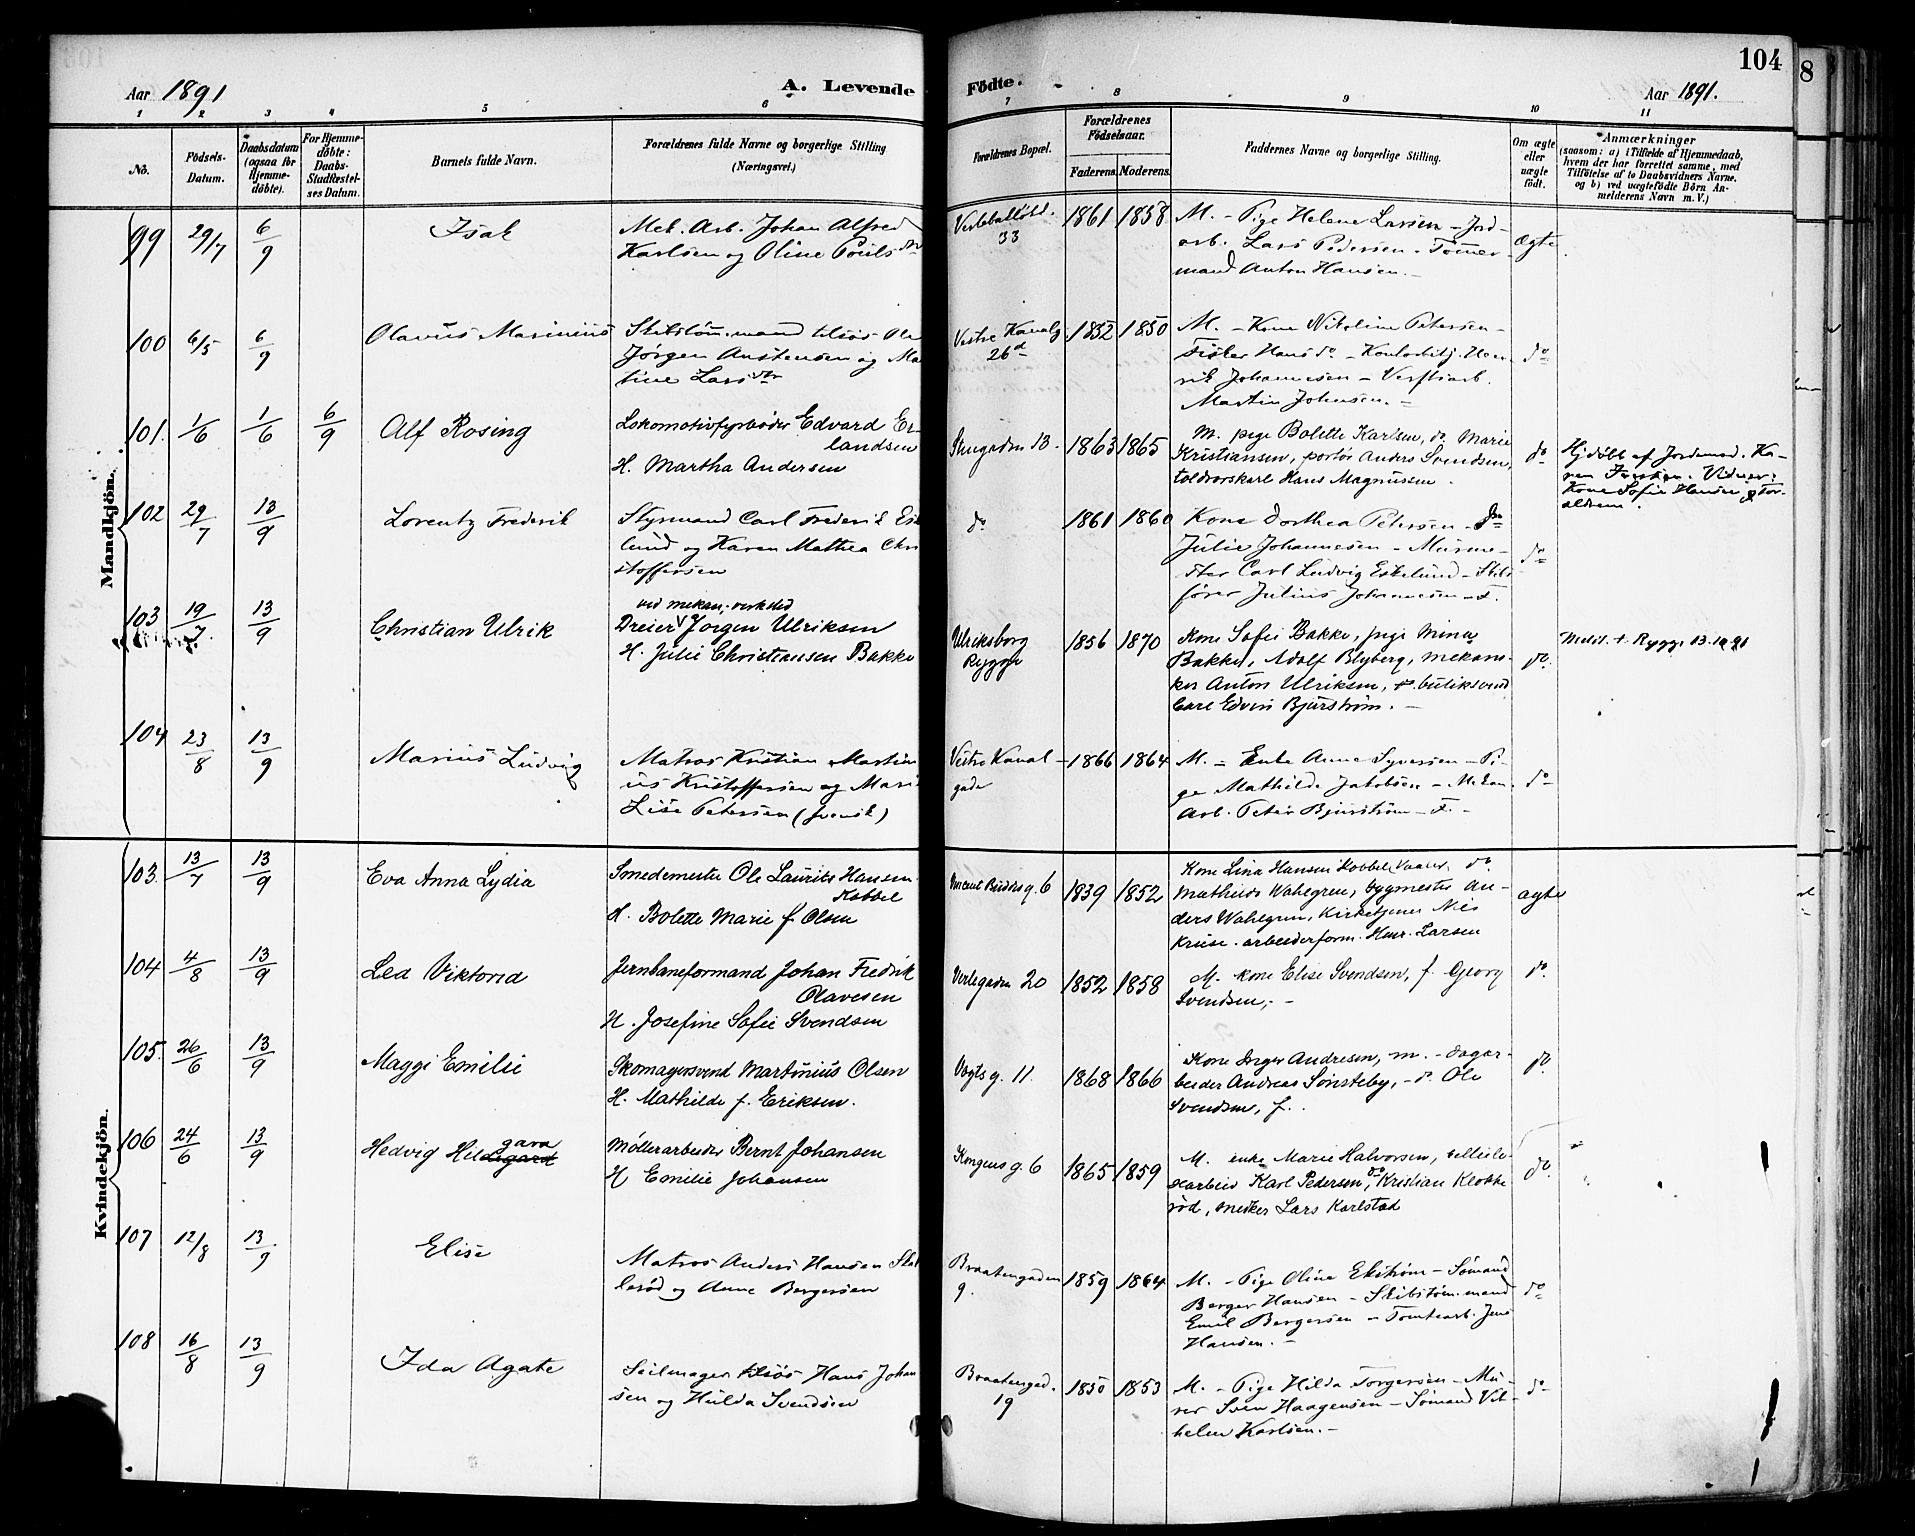 104
8
Aar 1891
A. Levende
Födte.
Aar 1891.
1
2
3
4
5
6
7
8
9
10
11
No.
Födsels-
Datum.
Daabsdatum
(ogsaa for
Hjemme-
døbte).
For Hjemme-
døbte:
Daabs-
Stadfæstel-
ses Datum.
Barnets fulde Navn.
Forældrenes fulde Navne og borgerlige Stilling
(Næringsvei.)
Forældrenes Bopæl.
Forældrenes
Födselsaar.
Faderens.
Moderens.
Faddernes Navne og borgerlige Stilling.
Om ægte
eller
uægte
født.
Anmærkninger
(saasom: a) i Tilfælde af Hjemmedaab,
hvem der har forrettet samme, med
Tilföielse af to Daabsvidners Navne.
og b) ved uægtefödte Börn An-
melderens Navn m. V.)
Mandkjön.
99 29/7 6/9 Isak
Mek. Arb. Johan Alfred
Karlsen og Oline Pouls dr
33
1861 1858
M. – Pige Helene Larsen – Jord-
arb. Lars Pedersen – Tømmer-
mand Anton Hansen. –
Ægte
100 6/5 6/9 Olavus Marinius
Skibstøm.mand tilsös Ole
Jørgen Anstensen og Ma
tine Lars dtr
Vestre Kanalg.
26d
1852 1850
M. – Kone Nikoline Petersen –
Fisker Hans do – Kontorbetj. Hen-
rik Johannesen – Verftsarb.
Martin Johnsen. –
do
101. 1/6 1/6 6/9 Alf Rosing
Lokomotivfyrbøder Edvard Er-
landsen
H. Martha Andersen
Storgaden 13.
1863 1865
M. pige Bolette Karlsen, do Marie
Kristiansen, portør Anders Svendsen,
toldvorskarl Hans Magnussen.
do
Hjdöbt af Jordemod. Ka-
Vidner:
Kone Sofie Hansen og For-
ældrene.
102 29/7 13/9 Lorentz Frederik
Styrmand Carl Frederik Esk
lund og Karen Mathea Chri
stoffersen
do
1861 1860
Kone Dorthea Petersen – do
Julie Johannesen – Murme-
ster Carl Ludvig Eskelund – Skibs
fører Julius Johannesen – F.
do
103 19/7 13/9 Christian Ulrik
ved mekan. verksted
Dreier Jørgen Ulriksen
H. Julie Christiansen Bakke
Ulriksborg
Rygge
1856 1870
Kone Sofie Bakke, pige Mina
Bakke, Adolf Blyberg, mekani-
ker Anton Ulriksen, butiksvend
Carl Edvin Bjurstrøm. –
do.
Meld. t. Rygge 13.10.91
104 23/8 13/9 Marius Ludvig
Matros Kristian Martin
ius Kristoffersen og Mari
Lise Petersen (svensk)
Vestre Kanal-
gade
1866 1864
M. – Enke Anne Syversen – Pi-
ge Mathilde Jakobsen – Mekan.
Arb. Peter Bjurstrøm – F. –
do
Kvindekjön.
103. 13/7 13/9 Eva Anna Lydia
Smedemester Ole Laurits Hansen
Kobbel
H. Bolette Marie f. Olsen
Vincent Buddes g. 6
1839 1852
Kone Lina Hansen Kobbel, Vaaler, do
Mathilds Wahlgren, bygmester An-
ders Wahlgren, Kirketjener Nils
Kruse. arbeiderform. Henr. Larsen
ægte
104 4/8 13/9 Lea Viktoria
Jernbaneformand Johan Fredrik
Olavesen
H. Josefine Sofie Svendsen
Verlegaden 20
1852 1858
M. kone Elise Svendsen, f. Georg
Svendsen, –
do.
105. 26/6 13/9 Maggi Emilie
Skomagersvend Martinius Olsen
H. Mathilde f. Eriksen.
Vogts g. 11.
1868 1866
Kone Inger Andresen, m. – dagar-
beider Andreas Sønsteby, – do. Ole
Svendsen, f.
do.
106 24/6 13/9 Hedvig Hildegard gara
Møllerarbeider Bernt Johansen
H Emilie Johansen
Kongens g. 6
1865 1859
M. enke Marie Halvorsen, cellulo-
searbeid Karl Pedersen, do Kristian Klokke
rød, snedker Lars Karlstad
do.
107 12/8 13/9 Elise
Matros Anders Hansen Skal
lerød og Anne Bergersen
Braatengaden
9.
1859 1864
M. – Pige Oline Ekstrøm – Sømand
Berger Hansen – Skibstøm.mand
Emil Bergersen – Tomtearb. Jens
Hansen. –
do
108 16/8 13/9 Ida Agate
Seilmager tilsös Hans Johan
sen og Hulda Svendsen
Braatengad.
19
1850 1853
M. – Pige Hilda Torgersen – Mu-
rer Sven Haagensen – Sømand Vil-
helm Karlsen. –
do